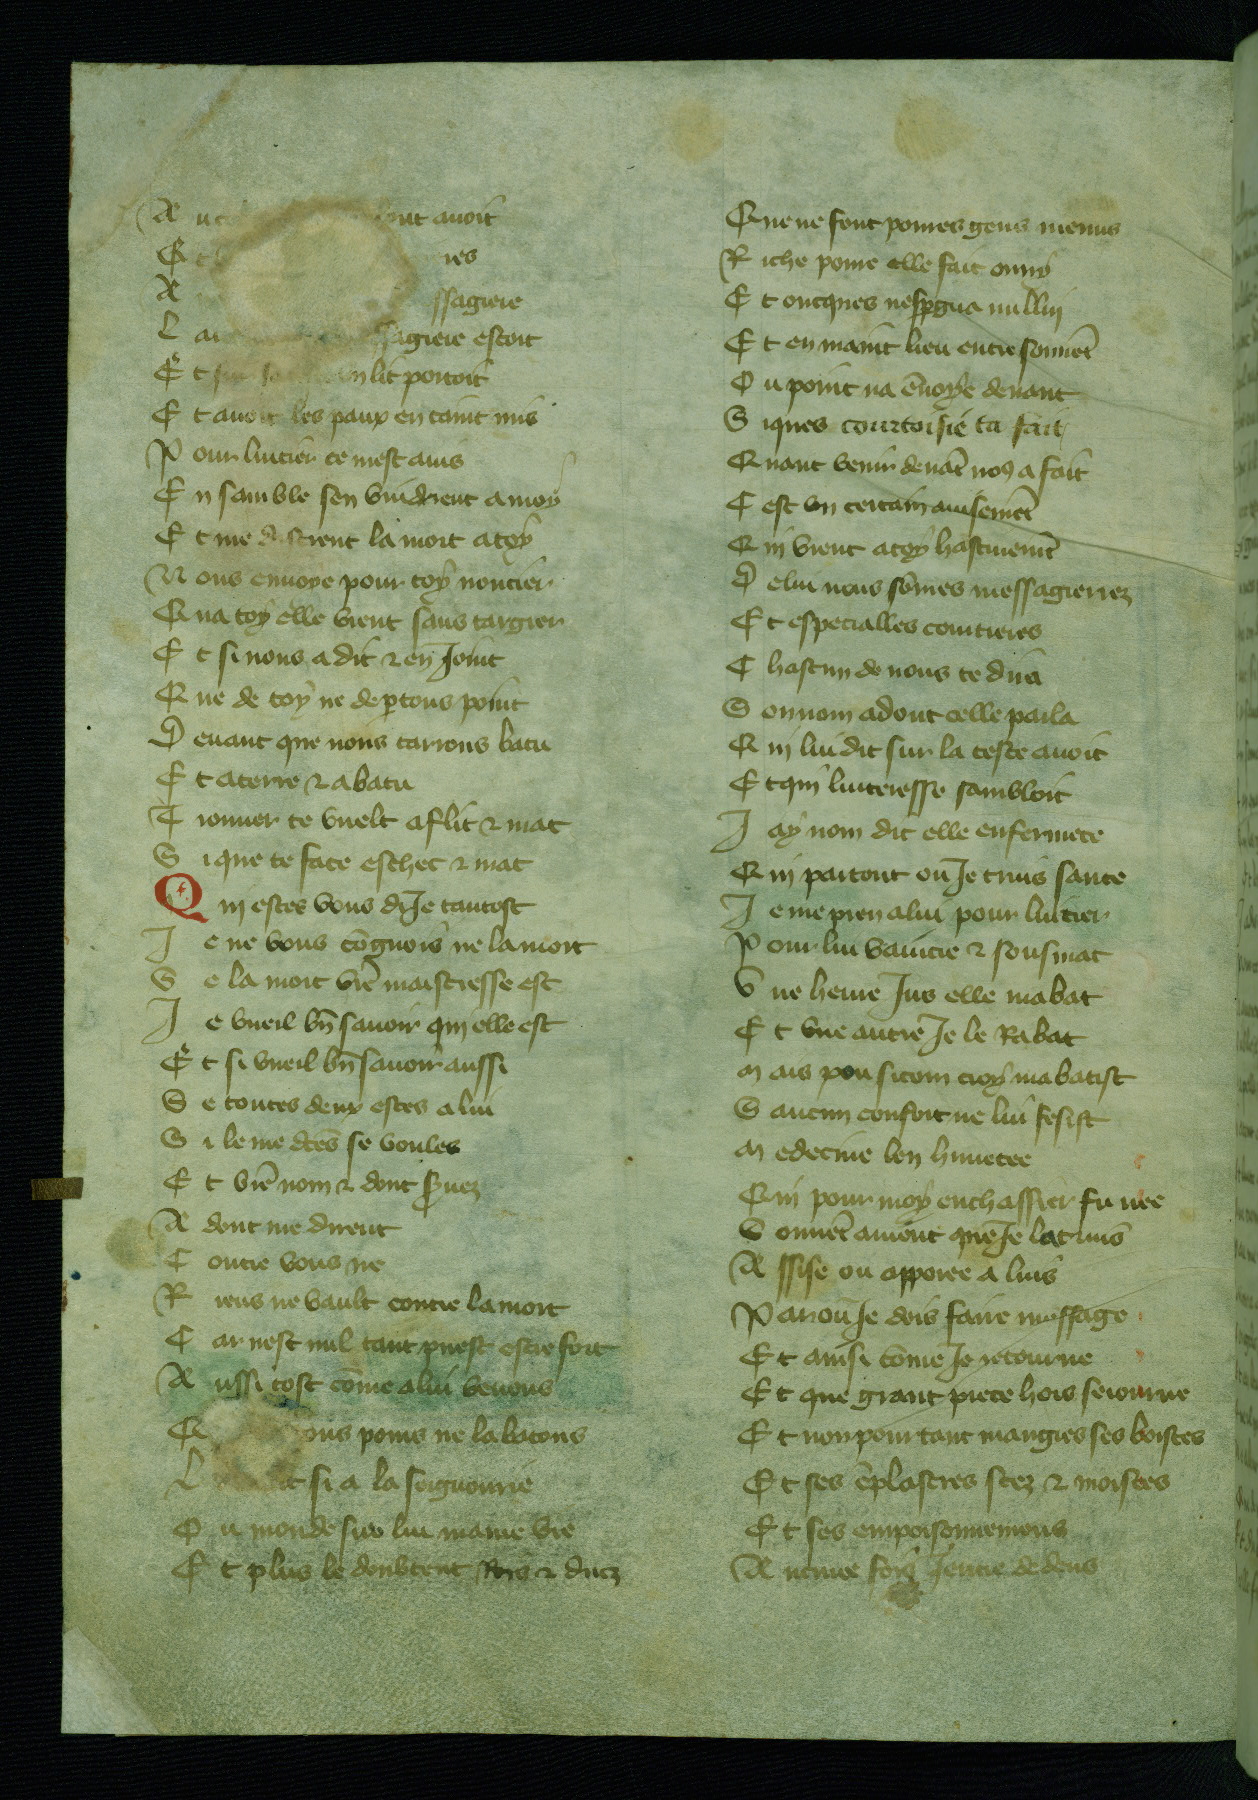 A uc ent auoit
Et ies
A ssagiere
L au sagiere estoit
Et lit portoit
Et auoit les paux en caint mis
Pour luitier ce mest auis
En samble sen vindrent a moy
Et me disrent la mort a toy
Nous enuoye pour toy noncier
Qua toy elle vient sans targier
Et si nous a dit & en Joint
Que de toy ne deptons point
Deuant que nous tarrons batu
Et aterre & abatu
Trouuer te vuelt aflit & mat
Si que te face eschec & mat
Qui estes vous dis Je tantost
Je ne vous cōgnois ne la mort
Se la mort vrē maistresse est
Je vueil bn̄ sauoir qui elle est
Et si vueil bn̄ sauoir aussi
Se toutes deux estes a lui
Si le me dctēs se voules
Et vrē nom & dont suez
Adont me dirent
Contre vous ne
Riens ne vault contre la mort
Car nest nul tant puest estre fort
Aussi tost cōme a lui venons
Q ons poins ne labatons
L t si a la seignourie
Ou monde sur lui maine vie
Et plus le doubtent Rois & ducz
Que ne font poures gens menus
Riche poure elle fait onny
Et oncques nespgna nulluy
Et en maint lieu entre souuēt
Ou point na ēuoye deuant
Si ques courtoisie ta fait
Quant venir deuāt no9 a fait
Cest vn certain auisemēt
Qui vient a toy hastiuemēt
De lui nous sōmes messagierez
Et especialles courrieres
Chascun de nous te dira
Son nom adont celle parla
Qui lui dit sur la teste auoit
Et qui luiteresse sambloit
Jay nom dit elle enfermete
Qui partout ou Je truis sante
Je me pren a lui pour luitier
Pour lui vaincre & sousmat
Vne heure Jus elle mabat
Et vne autre Je le Rabat
Mais pou sicom croy mabatist
Saucun confort ne lui fesist
Medecine ben hinetee
Qui pour moy enchassier fu nee
Souuēt auient que Je la truis
Assise ou apporee a luis
Par ou Je dois faire message
Et ainsi cōme Je retourne
Et que grant piece hors seiourne
Et non pour tant mangies ses boistes
Et ses ēplastres secz & moistes
Et ses empoisonnemens
Aucune fois Jentre dedens